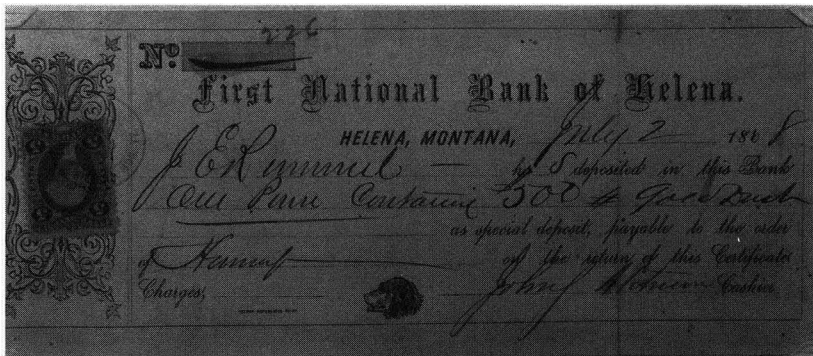 No. 226
First National Bank of Helena.
HELENA, MONTANA, July 2 1868
J E Rummel has deposited in this Bank
One Purse Containing 500 $ Gold Dust
as special deposit, payable to the order
of Himself on the return of this Certificate
Charges, John Cashier